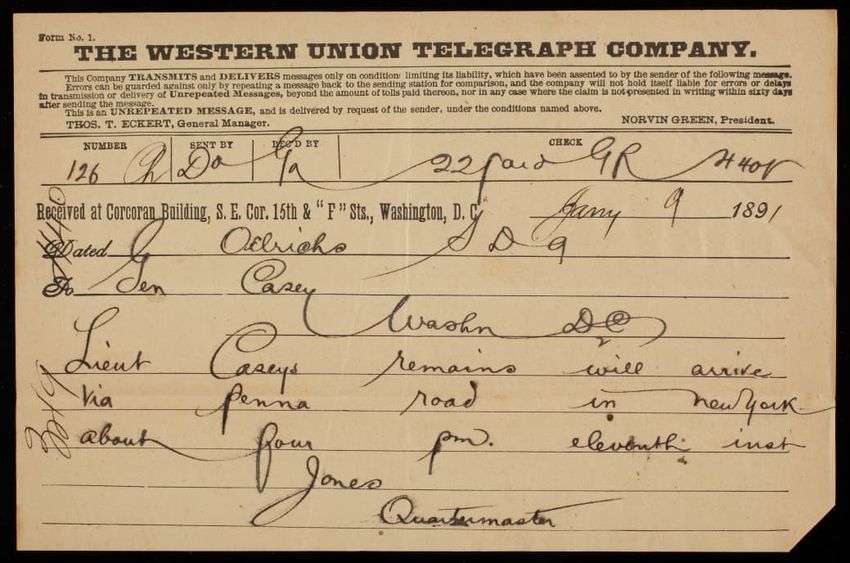 Form No. 1.
THE WESTERN UNION TELEGRAPH COMPANY.
This Company TRANSMITS and DELIVERS messages only on condition limiting its liability, which have been assented to by the sender of the following message.
Errors can be guarded against only by repeating a message back to the sending station for comparison, and the company will not hold itself liable for errors or delays
in transmission or delivery of Unrepeated Messages, beyond the amount of tolls paid thereon, nor in any case where the claim is not presented in writing within sixty days
after sending the message.
This is an UNREPEATED MESSAGE, and is delivered by request of the sender, under the conditions named above.
THOS. T. ECKERT, General Manager. NORVIN GREEN, President.
NUMBER SENT BY REC'D BY CHECK
126 Ch Do Ga 22 paid GR
Received at Corcoran Building, S. E. Cor. 15th & "F" Sts., Washington, D. C. Jany 9 1891
Dated Oelrichs S D 9
To Gen Casey
Washn DC
Lieut Caseys remains will arrive
Via penna road in new york
about four pm. eleventh inst
Jones
Quartermaster